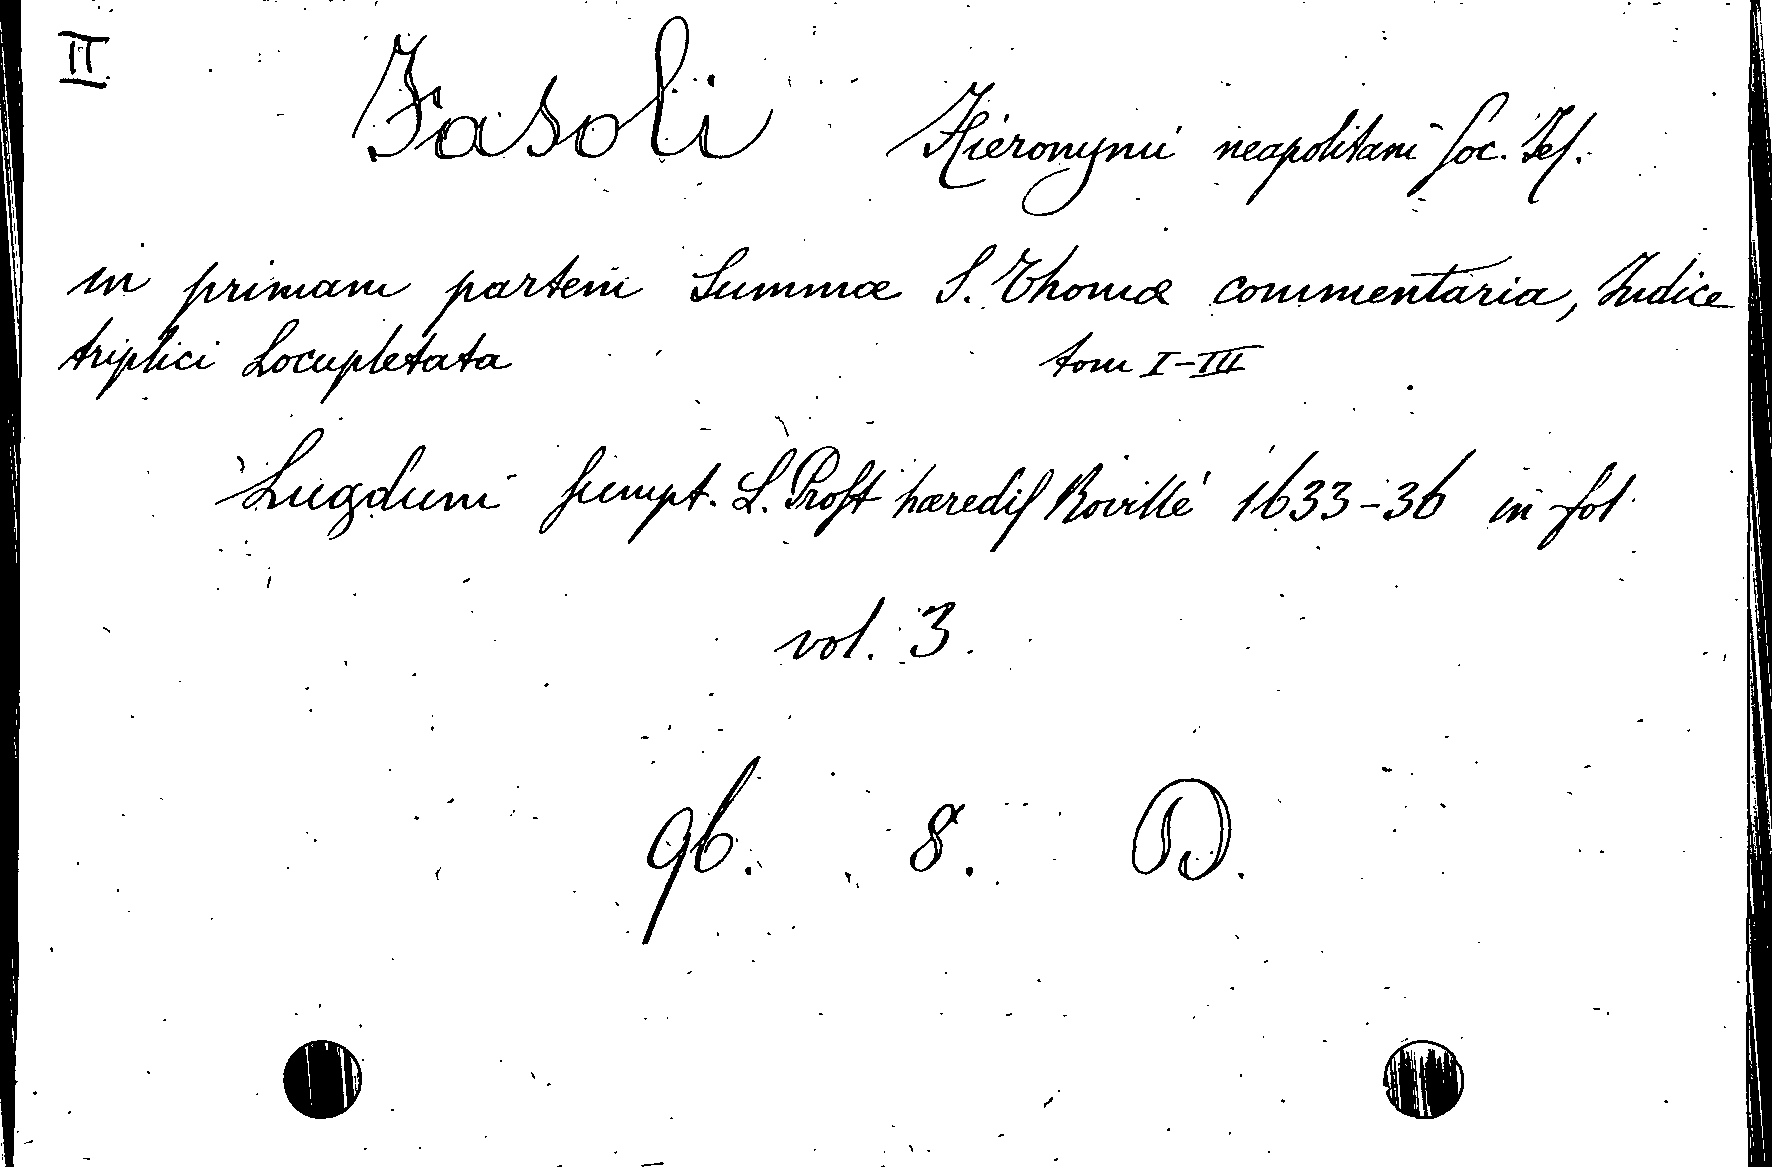 II
Fasoli Hieronymi neapolitani Soc. Jes.
in primam partem Summæ S. Thomæ commentaria, Indice
triplici Locupletata tom I-III
Lugduni sumpt. L. Prost hæredis Roville 1633-36 in fol
vol. 3.
96. 8. D.